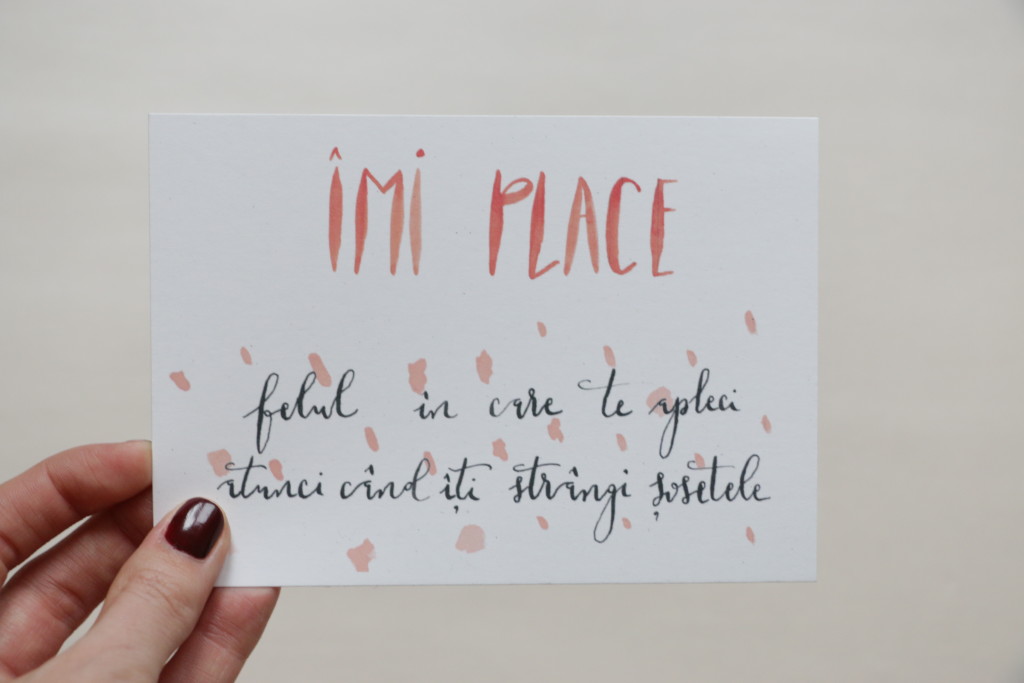 îMi PLACE
felul in care te apleci
atunci când îți strângi șosetele